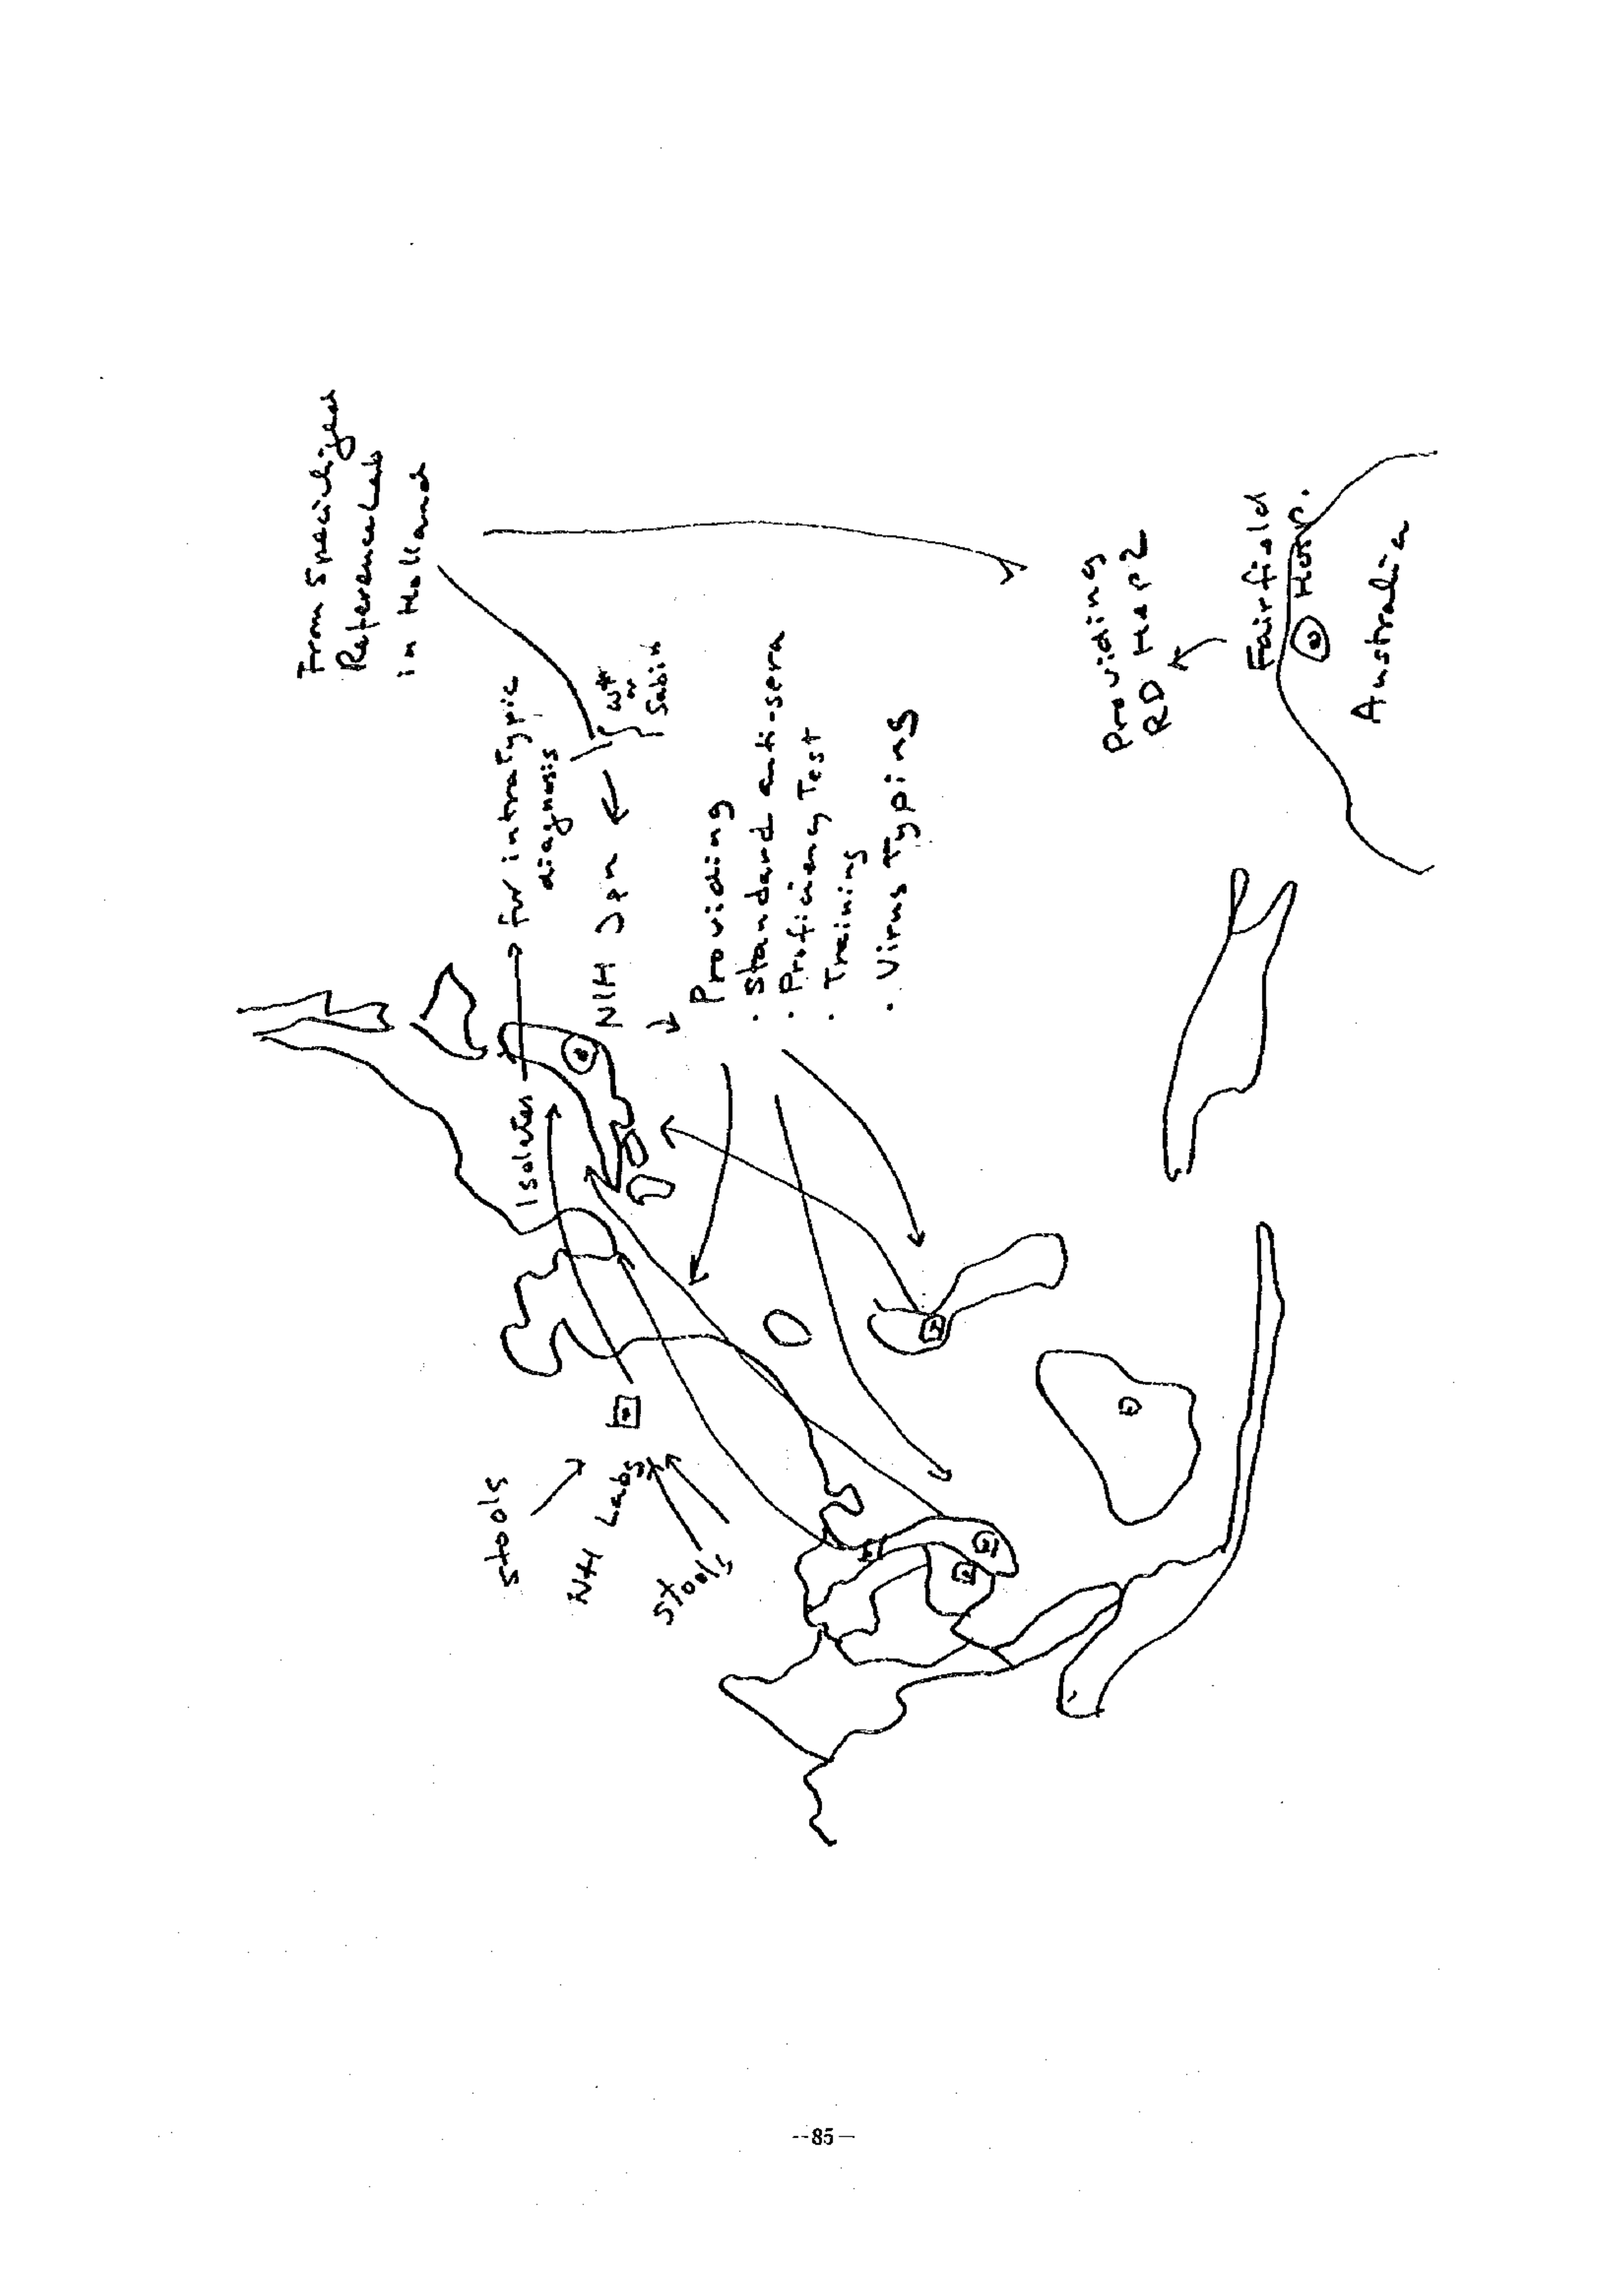 From Specialized
Reference Lab
in Holland
Isolates → for intratypic
diagnosis
wt
or
Sabin
NIH Jpn ←
Providing
· Standard anti-sera
· Proficiency Test
· Training
· Virus Typing
stools
Labs
stools
Providing
RD Hep2
Fairfield
Hosp.
Australia
--85--